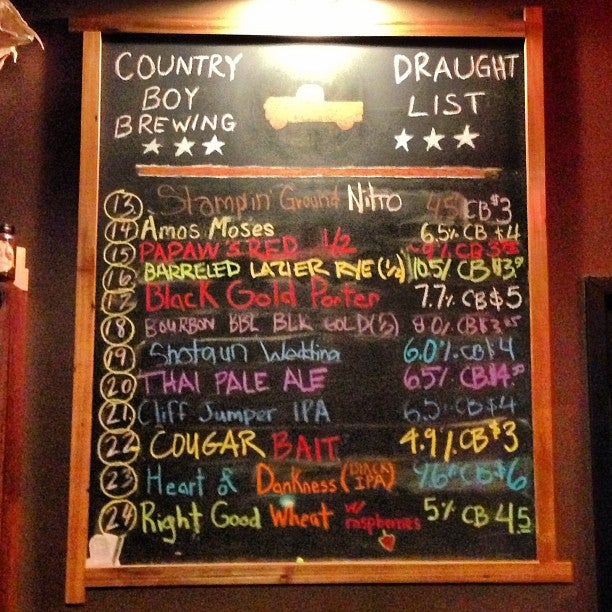 COUNTRY BOY BREWING
DRAUGHT LIST
13 Stampin' Ground Nitro CB $3
14 Amos Moses 6.5% CB $4
15 PAPAW'S RED 1/2
16 BARRELED LAZIER RYE (1/2) 10.5% CB
17 Black Gold Porter 7.7% CB $5
18 BOURBON BBL BLK GOLD (1/2) CB
19 Shotgun Wedding 6.0% CB $4
20 THAI PALE ALE 6.5%
21 Cliff Jumper IPA 6.5% CB $4
22 COUGAR BAIT 4.9% CB $3
23 Heart of Dankness (BLACK IPA) 9.6% CB $6
24 Right Good Wheat w/ raspberries 5% CB 4.5